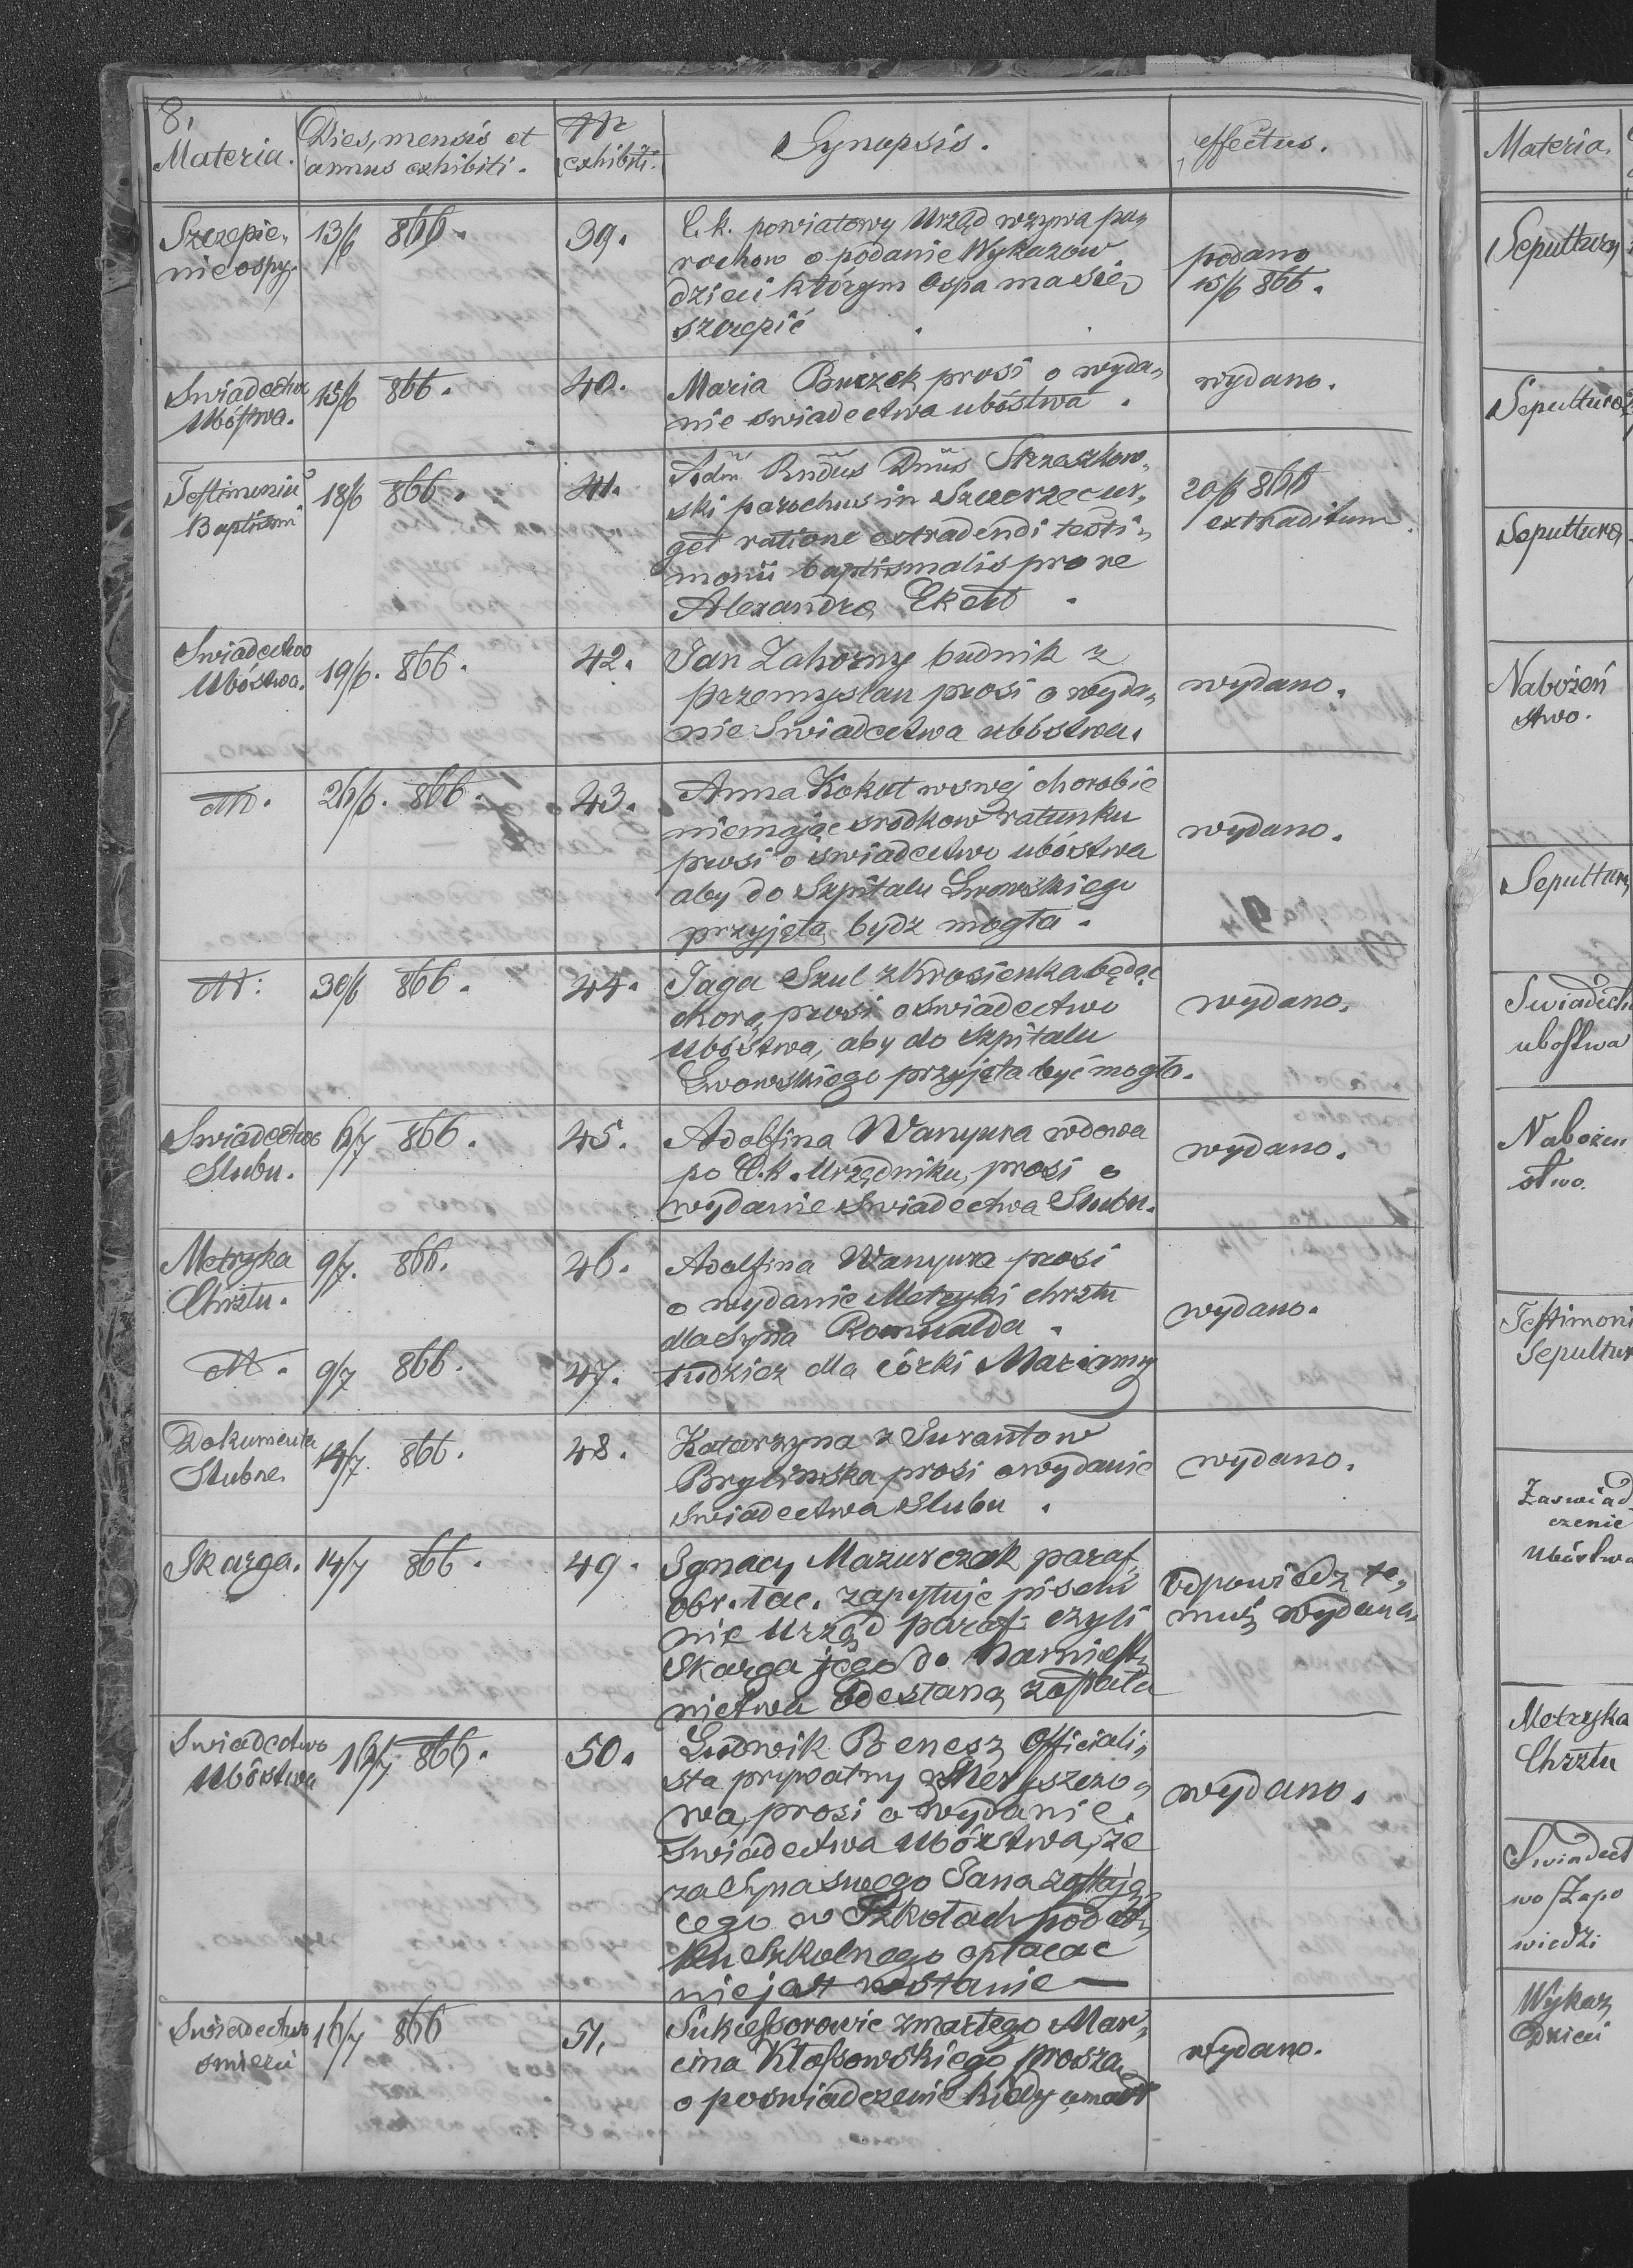 8,
Materia. Dies, mensis et annus exhibiti. Nr exhibiti. Synopsis. effectus.
Szczepie„ 13/6 866. 39. C. k. powiatowy Urząd wzywa pa„
nie ospy. rochow o podanie Wykazow podano
dzieci którym ospa ma się 15/6 866.
szczepić
Swiadectwo 15/6 866. 40. Maria Buczek prosi o wyda„ wydano.
Ubóstwa. nie swiadectwa ubóstwa.
Testimoniũ 18/6 866. 41. Adm̃ Rndus Dnus Strzeszkow„ 20/6 866
Baptismi ski parochus in ur„ extraditum.
get ratione extradendi testi„
monii baptismalis pro re
Alexandra Ekert
Swiadectwo 19/6. 866. 42. Jan Zahorny budnik z
Ubóstwa. Przemyslan prosi o wyda„ wydano.
nie Swiadectwa ubóstwa.
26/6. 866. 43. Anna Kokot w swej chorobie
niemając srodkow ratunku wydano.
prosi o swiadectwo ubóstwa
aby do Szpitalu Lwowskiego
przyjęta bydz mogła.
30/6 866. 44. Jaga Szul z Krosienka będąc
chorą prosi o swiadectwo wydano.
Ubóstwa, aby do szpitalu
Lwowskiego przyjęta być mogła.
Swiadectwo 6/7 866. 45. Adolfina Wanyura wdowa
Slubu. po C. k. Urzędniku, prosi o wydano.
wydanie swiadectwa Slubu.
Metryka 9/7. 866. 46. Adolfina Wanyura prosi
Chrztu. o wydanie Metryki chrztu wydano.
dla Syna Romualda.
9/7 866. 47. tudziez dla córki Marianny
Dokumenta 14/7. 866. 48. Katarzyna z Surantow
Slubne. Brylinska prosi o wydanie wydano.
swiadectwa Slubu.
Skarga. 14/7 866. 49. Ignacy Mazurczak paraf.
obr. łac. zapytuje pisem„ Odpowiedz te„
nie Urząd paraf. czyli muż wydana.
Skarga jego do Namiest„
nictwa odesłaną została
Swiadectwo 16/7 866. 50. Ludwik Benesz Officiali„
Ubóstwa sta prywatny z szczo„
wa, prosi o wydanie wydano.
Swiadectwa Ubóstwa, że
za Syna swego Jana zostają„
cego w Szkołach
Szkolnego opłacac
nie jest w stanie —
Swiadectwo 16/7 866 51. Sukcessorowie zmarłego Mar„
smierci cina Kłossowskiego proszą wydano.
o poswiadczenie kiedy umarł
Materia.
Sepultura
Sepultura
Sepultura
Nabożeń
stwo.
Sepultura
Swiadectw
ubostwa
Nabożen
stwo.
Testimoni
Sepultur
Zaswiad„
czenie
Ubóstwa
Metryka
Chrztu
Swiadect
wo Zapo
wiedzi
Wykaz
Dzieci